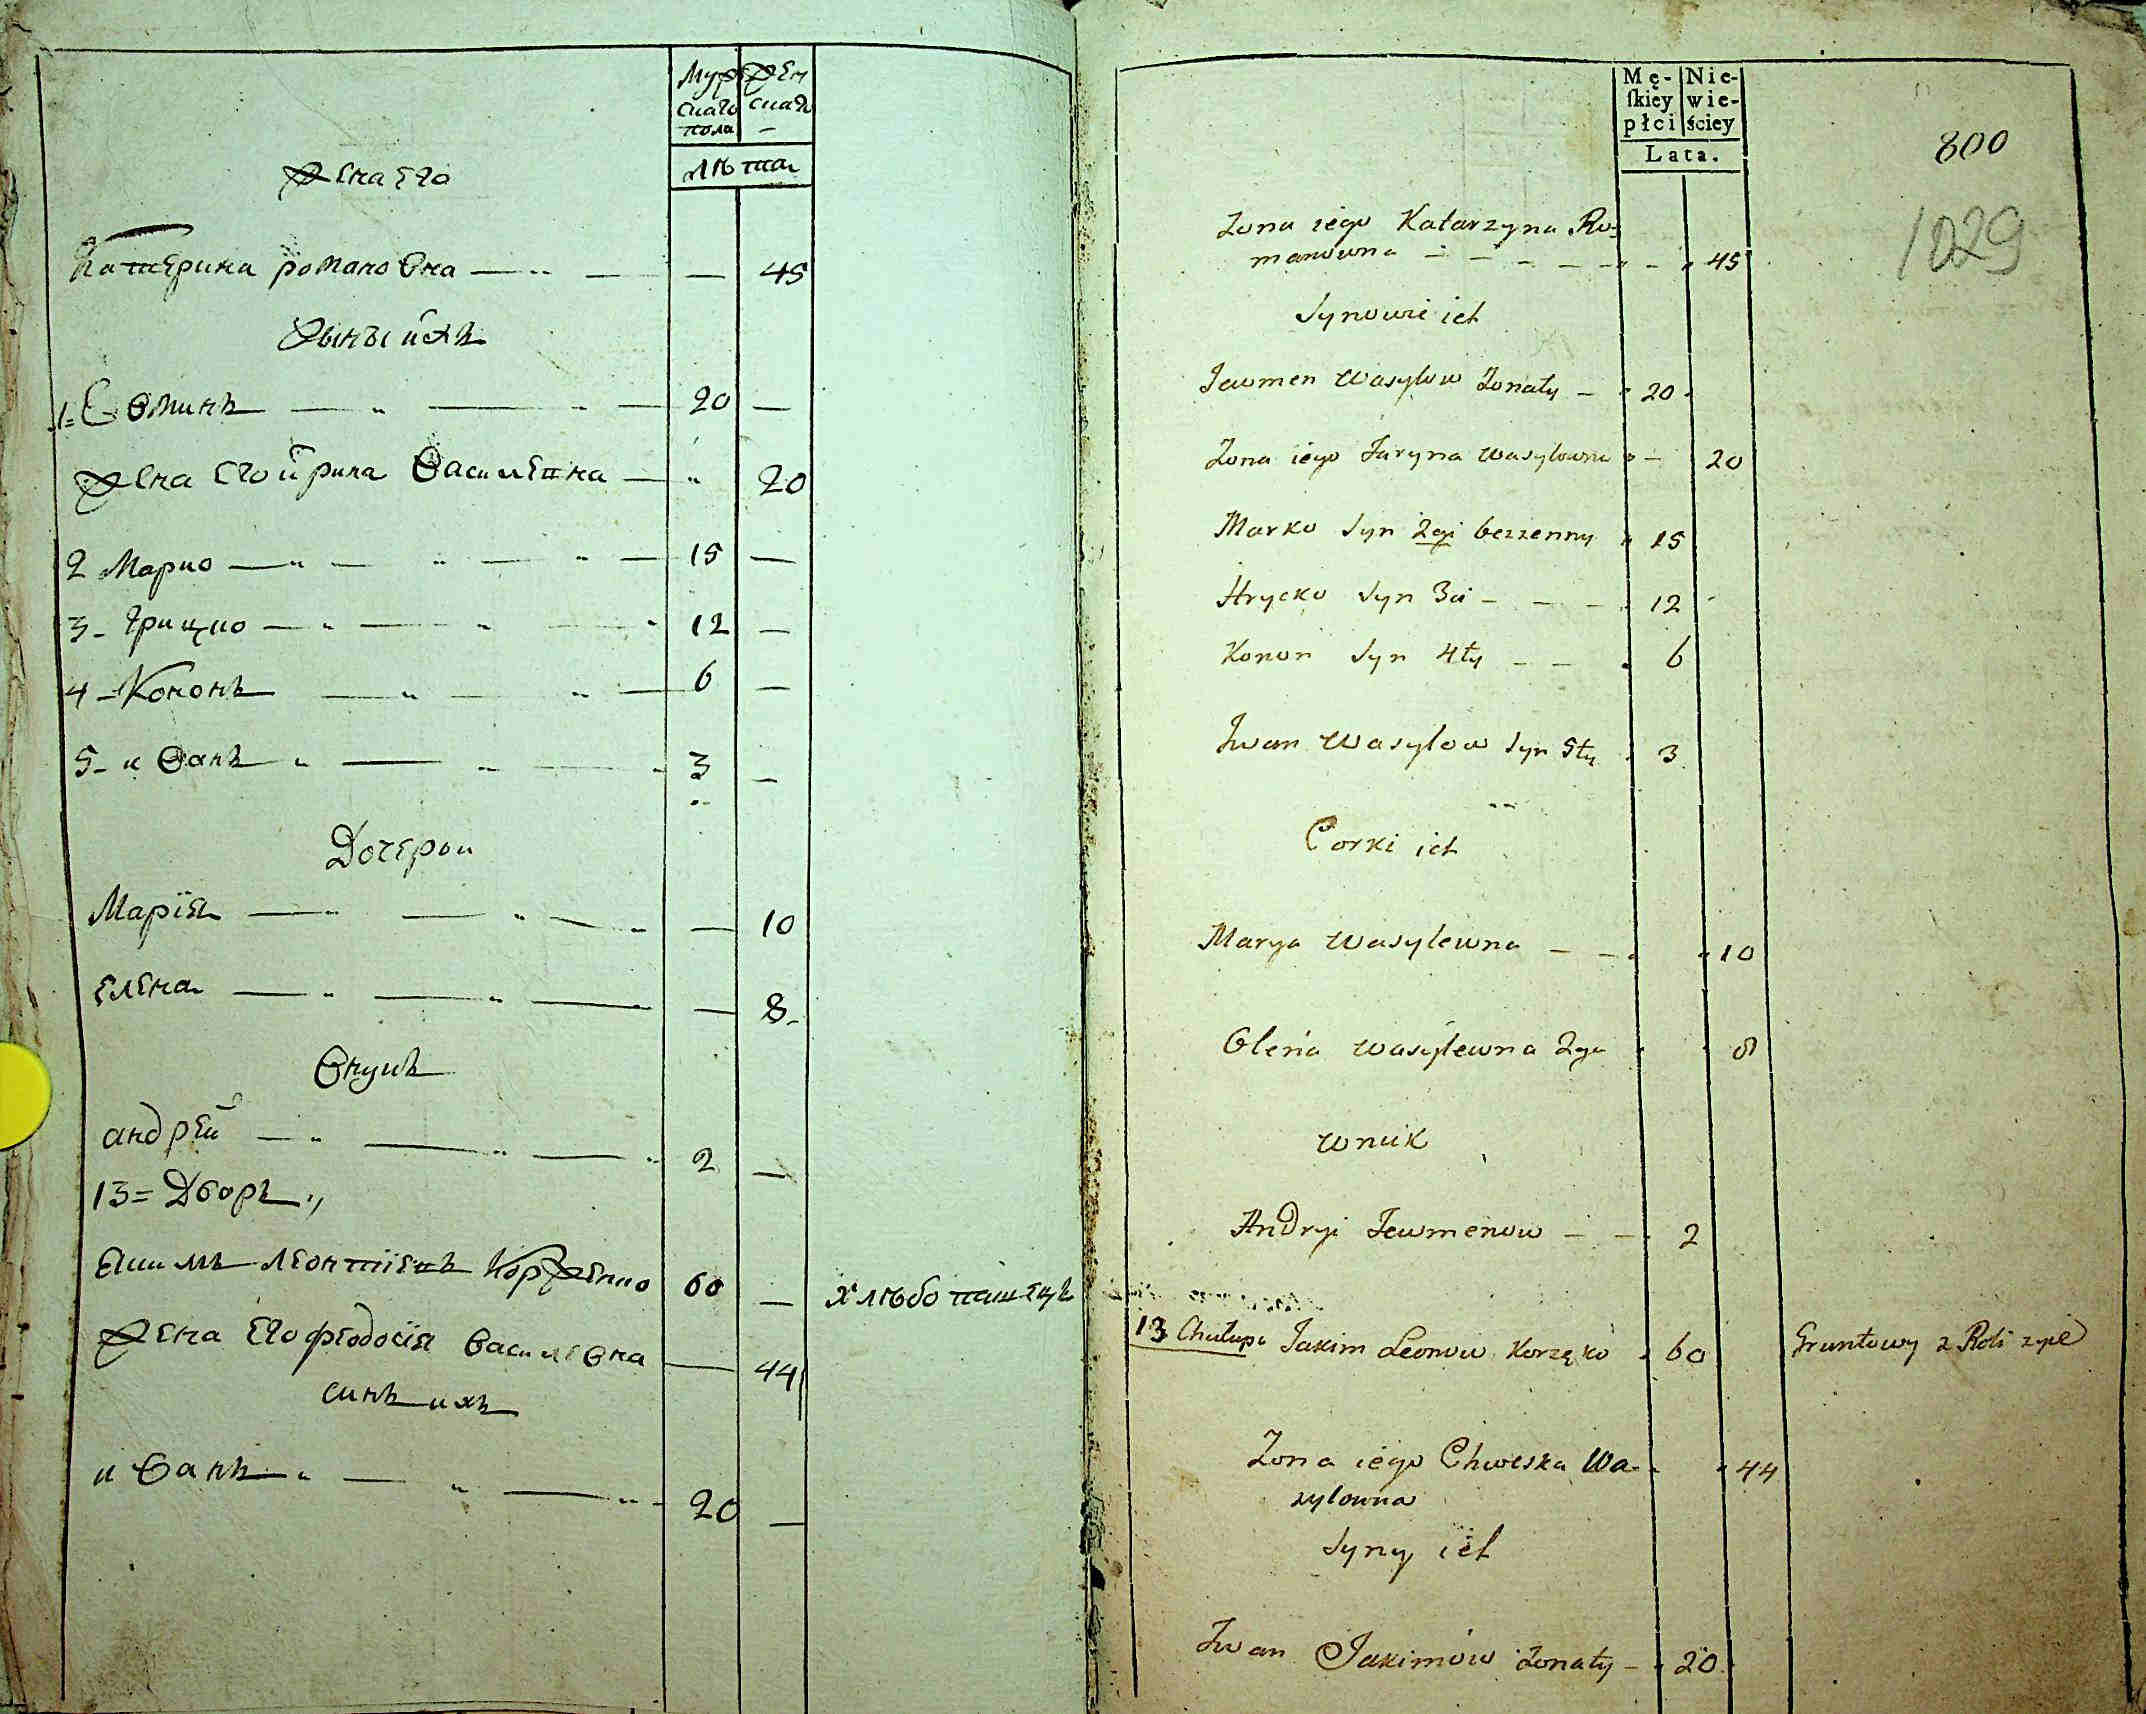 Муж
скаго
пола
Жен
скаго
лѣта
Жена Его
Катерина романовна — — — 45
Сыны ихъ
1= Евминъ — — — 20 —
Жена Его ирина Василевна — „ 20
2 Марко — „ — „ — „ — 15 —
3 - Грицко — „ — „ — „ 12 —
4 - Кононъ — „ — „ — 6 —
5 - иванъ „ — „ — 3 —
Дочери
Марія — „ — „ — 10
Елена — „ — „ — — 8
Внукъ
андрей — „ — „ — „ 2 —
13= Дворъ „
Екимъ леонтіевъ Корженко 60 — хлѣбопашецъ
Жена Его феодосія василевна — 44
синъ ихъ
иванъ „ — „ — „ 20 —
Mę-
skiey
płci
Nie-
wie-
ściey
Lata.
800
1029
Zona iego Katarzyna Ro-
manowna — — — — 45
Synowie ich
Jewmen Wasylow Zonaty — 20
Zona iego Jaryna Wasylowna — 20
Marko Syn 2gi bezzenny 15
Hrycko Syn 3ci — — — 12
Konon Syn 4ty — — 6
Iwan Wasylow Syn 5ty 3
Corki ich
Marya Wasylewna — — 10
Olena Wasylewna 2ga 8
Wnuk
Andryi Jewmenow — — 2
13 Chałupa Jakim Leonow Korzęko 60 Gruntowy z Roli zyie
Zona iego Chweska Wa-
sylowna 44
Syny ich
Iwan Jakimow Zonaty — 20